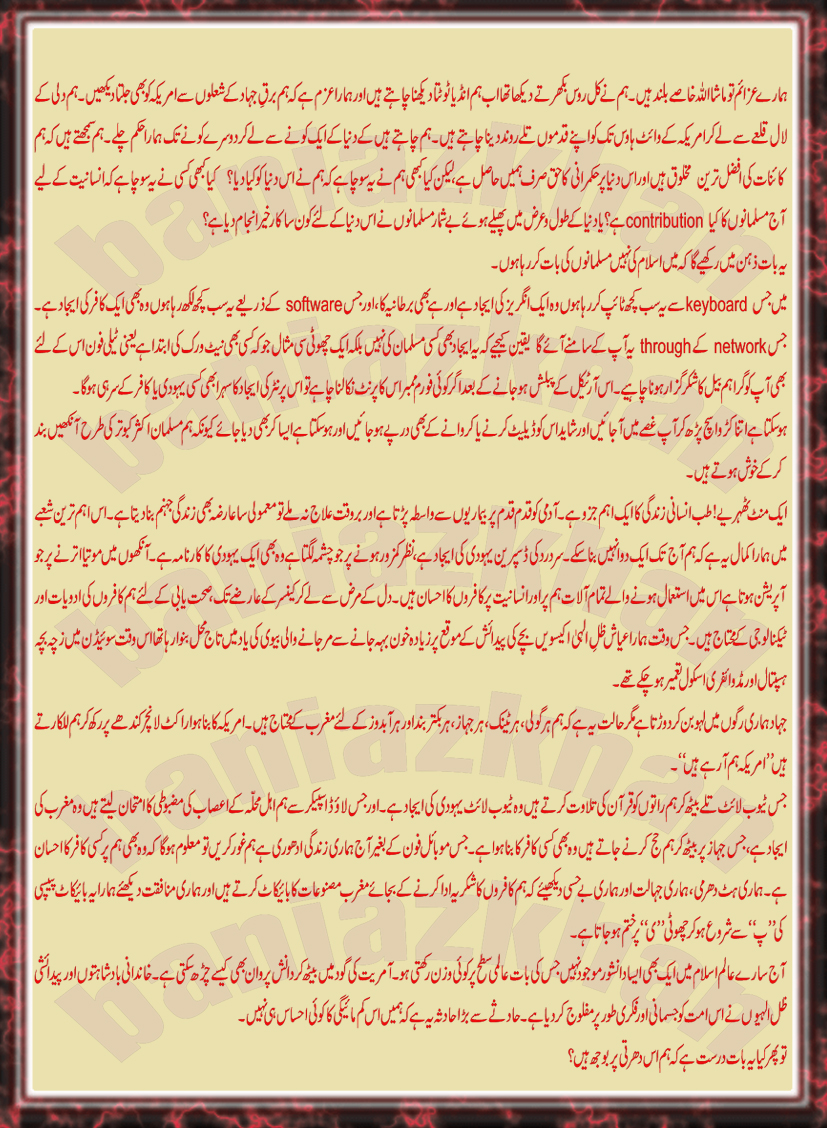 ہمارے عزائم تو ماشااللہ خاصے بلند ہیں۔ ہم نے کل روس بکھرتے دیکھا تھا اب ہم انڈیا ٹوٹتا دیکھنا چاہتے ہیں اور ہمارا عزم ہے کہ ہم برقِ جہاد کے شعلوں سے امریکہ کو بھی جلتا دیکھیں۔ ہم دلی کے
لال قلعے سے لے کر امریکہ کے وائٹ ہاوس تک کو اپنے قدموں تلے روند دینا چاہتے ہیں۔ ہم چاہتے ہیں کے دنیا کے ایک کونے سے لے کر دوسرے کونے تک ہمارا حکم چلے۔ ہم سمجھتے ہیں کہ ہم
کائنات کی افضل ترین مخلوق ہیں اور اس دنیا پر حکمرانی کا حق صرف ہمیں حاصل ہے، لیکن کیا کبھی ہم نے یہ سوچا ہے کہ ہم نے اس دنیا کو کیا دیا؟ کیا کبھی کسی نے یہ سوچا ہے کہ انسانیت کے لیے
آج مسلمانوں کا کیا contribution ہے؟ یا دنیا کے طول و عرض میں پھیلے ہوئے بے شمار مسلمانوں نے اس دنیا کے لئے کون سا کار خیر انجام دیا ہے؟
یہ بات ذہن میں رکھیے گا کہ میں اسلام کی نہیں مسلمانوں کی بات کر رہا ہوں۔
میں جس keyboard سے یہ سب کچھ ٹائپ کر رہا ہوں وہ ایک انگریز کی ایجاد ہے اور ہے بھی برطانیہ کا، اور جس software کے ذریعے یہ سب کچھ لکھ رہا ہوں وہ بھی ایک کافر کی ایجاد ہے۔
جس network کے through یہ آپ کے سامنے آئے گا یقین کیجیے کہ یہ ایجاد بھی کسی مسلمان کی نہیں بلکہ ایک چھوٹی سی مثال جو کہ کسی بھی نیٹ ورک کی ابتدا ہے یعنی ٹیلی فون اس کے لئے
بھی آپ کو گراہم بیل کا شکر گزار ہونا چاہیے۔ اس آرٹیکل کے پبلش ہو جانے کے بعد اگر کوئی فورم ممبر اس کا پرنٹ نکالنا چاہے تو اس پرنٹر کی ایجاد کا سہرا بھی کسی یہودی یا کافر کے سر ہی ہو گا۔
ہو سکتا ہے اتنا کڑوا سچ پڑھ کر آپ غصے میں آ جائیں اور شاید اس کو ڈیلیٹ کرنے یا کروانے کے بھی درپے ہو جائیں اور ہو سکتا ہے ایسا کر بھی دیا جائے کیونکہ ہم مسلمان اکثر کبوتر کی طرح آنکھیں بند
کر کے خوش ہوتے ہیں۔
ایک منٹ ٹھہریے! طب انسانی زندگی کا ایک اہم جزو ہے۔ آدمی کو قدم قدم پر بیماریوں سے واسطہ پڑتا ہے اور بروقت علاج نہ ملے تو معمولی سا عارضہ بھی زندگی جہنم بنا دیتا ہے۔ اس اہم ترین شعبے
میں ہمارا کمال یہ ہے کہ ہم آج تک ایک دوا نہیں بنا سکے۔ سر درد کی ڈسپرین یہودی کی ایجاد ہے، نظر کمزور ہونے پر جو چشمہ لگتا ہے وہ بھی ایک یہودی کا کارنامہ ہے۔ آنکھوں میں موتیا اترنے پر جو
آپریشن ہوتا ہے اس میں استعمال ہونے والے تمام آلات ہم پر اور انسانیت پر کافروں کا احسان ہیں۔ دل کے مرض سے لے کر کینسر کے عارضے تک، صحت یابی کے لئے ہم کافروں کی ادویات اور
ٹیکنالوجی کے محتاج ہیں۔ جس وقت ہمارا عیاش ظلِ الٰہی اکیسویں بچے کی پیدائش کے موقع پر زیادہ خون بہہ جانے سے مر جانے والی بیوی کی یاد میں تاج محل بنوا رہا تھا اس وقت سویڈن میں زچہ بچہ
ہسپتال اور مڈوائفری اسکول تعمیر ہو چکے تھے۔
جہاد ہماری رگوں میں لہو بن کر دوڑتا ہے مگر حالت یہ ہے کہ ہم ہر گولی، ہر ٹینک، ہر جہاز، ہر بکتر بند اور ہر آبدوز کے لئے مغرب کے محتاج ہیں۔ امریکہ کا بنا ہوا راکٹ لانچر کندھے پر رکھ کر ہم للکارتے
ہیں ”امریکہ ہم آ رہے ہیں“۔
جس ٹیوب لائٹ تلے بیٹھ کر ہم راتوں کو قرآن کی تلاوت کرتے ہیں وہ ٹیوب لائٹ یہودی کی ایجاد ہے۔ اور جس لاؤڈ اسپیکر سے ہم اہل محلہ کے اعصاب کی مضبوطی کا امتحان لیتے ہیں وہ مغرب کی
ایجاد ہے، جس جہاز پر بیٹھ کر ہم حج کرنے جاتے ہیں وہ بھی کسی کافر کا بنا ہوا ہے۔ جس موبائل فون کے بغیر آج ہماری زندگی ادھوری ہے ہم غور کریں تو معلوم ہو گا کہ وہ بھی ہم پر کسی کافر کا احسان
ہے۔ ہماری ہٹ دھرمی، ہماری جہالت اور ہماری بے حسی دیکھیئے کہ ہم کافروں کا شکریہ ادا کرنے کے بجائے مغرب مصنوعات کا بائیکاٹ کرتے ہیں اور ہماری منافقت دیکھئے ہمارا یہ بائیکاٹ پیپسی
کی ”پ“ سے شروع ہو کر چھوٹی ”ی“ پر ختم ہو جاتا ہے۔
آج سارے عالم اسلام میں ایک بھی ایسا دانشور موجود نہیں جس کی بات عالمی سطح پر کوئی وزن رکھتی ہو۔ آمریت کی گود میں بیٹھ کر دانش پروان بھی کیسے چڑھ سکتی ہے۔ خاندانی بادشاہتوں اور پیدائشی
ظل الٰہیوں نے اس امت کو جسمانی اور فکری طور پر مفلوج کر دیا ہے۔ حادثے سے بڑا حادثہ یہ ہے کہ ہمیں اس کم مائیگی کا کوئی احساس ہی نہیں۔
تو پھر کیا یہ بات درست ہے کہ ہم اس دھرتی پر بوجھ ہیں؟
baniazkhan
baniazkhan
baniazkhan
baniazkhan
baniazkhan